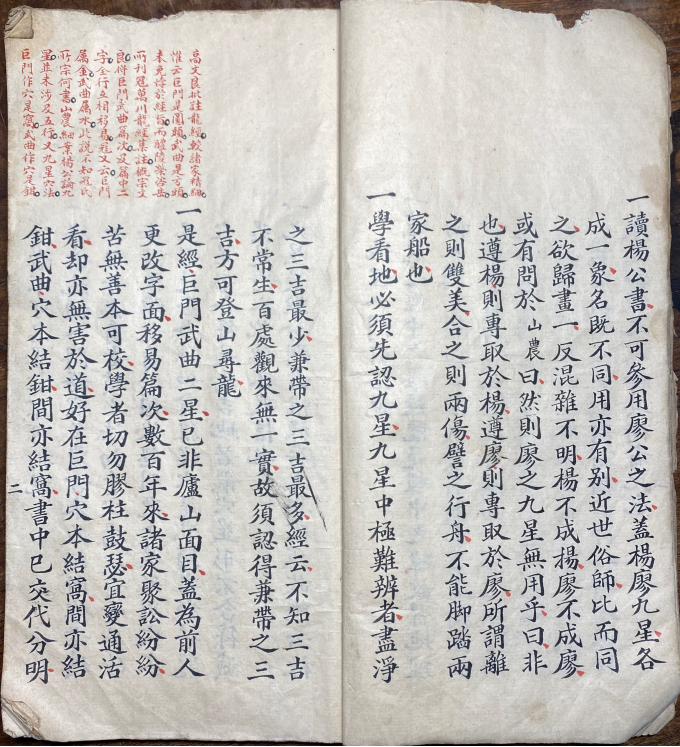 一讀楊公書不可參用廖公之法蓋楊廖九星各
成一象名既不同用亦有別近世俗師比而同
之欲歸畫一反混雜不明楊不成揚廖不成廖
或有問於山農曰然則廖之九星無用乎曰非
也遵楊則專取於楊遵廖則專取於廖所謂離
之則雙美合之則兩傷譬之行舟不能脚踏兩
家船也
一學看地必須先認九星九星中極難辨者盡淨
高文良批註龍經較諸家精細
惟云巨門是圓頭武曲是方頭
未免悖於經旨而醴陵榮治岳
所刊冠萬川龍經集註概宗文
良將巨門武曲篇次及篇中二
字全行互相移易冠又云巨門
屬金武曲屬水此説不知冠氏
所宗何書山農細楊公論九
星並未涉及五行又九星穴法
巨門作穴是窩武曲作穴是鉗
之三吉最少兼帶之三吉最多經云不知三吉
不常生百處觀來無一實故須認得兼帶之三
吉方可登山尋龍
一是經巨門武曲二星已非廬山面目蓋為前人
更改字面移易篇次數百年來諸家聚訟紛紛
苦無善本可校學者切勿膠杜鼓瑟宜變通活
看却亦無害於道好在巨門穴本結窩間亦結
鉗武曲穴本結鉗間亦結窩書中已交代分明
二